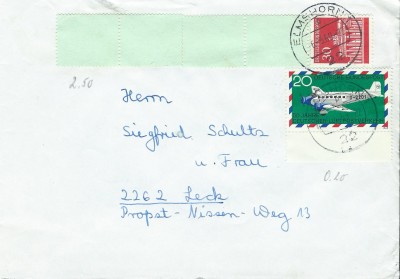 ELMSHORN
30
20
2.50
Herrn
Siegfried Schultz
u. Frau
2262 Leck
Propst-Nissen-Weg 13
0.20